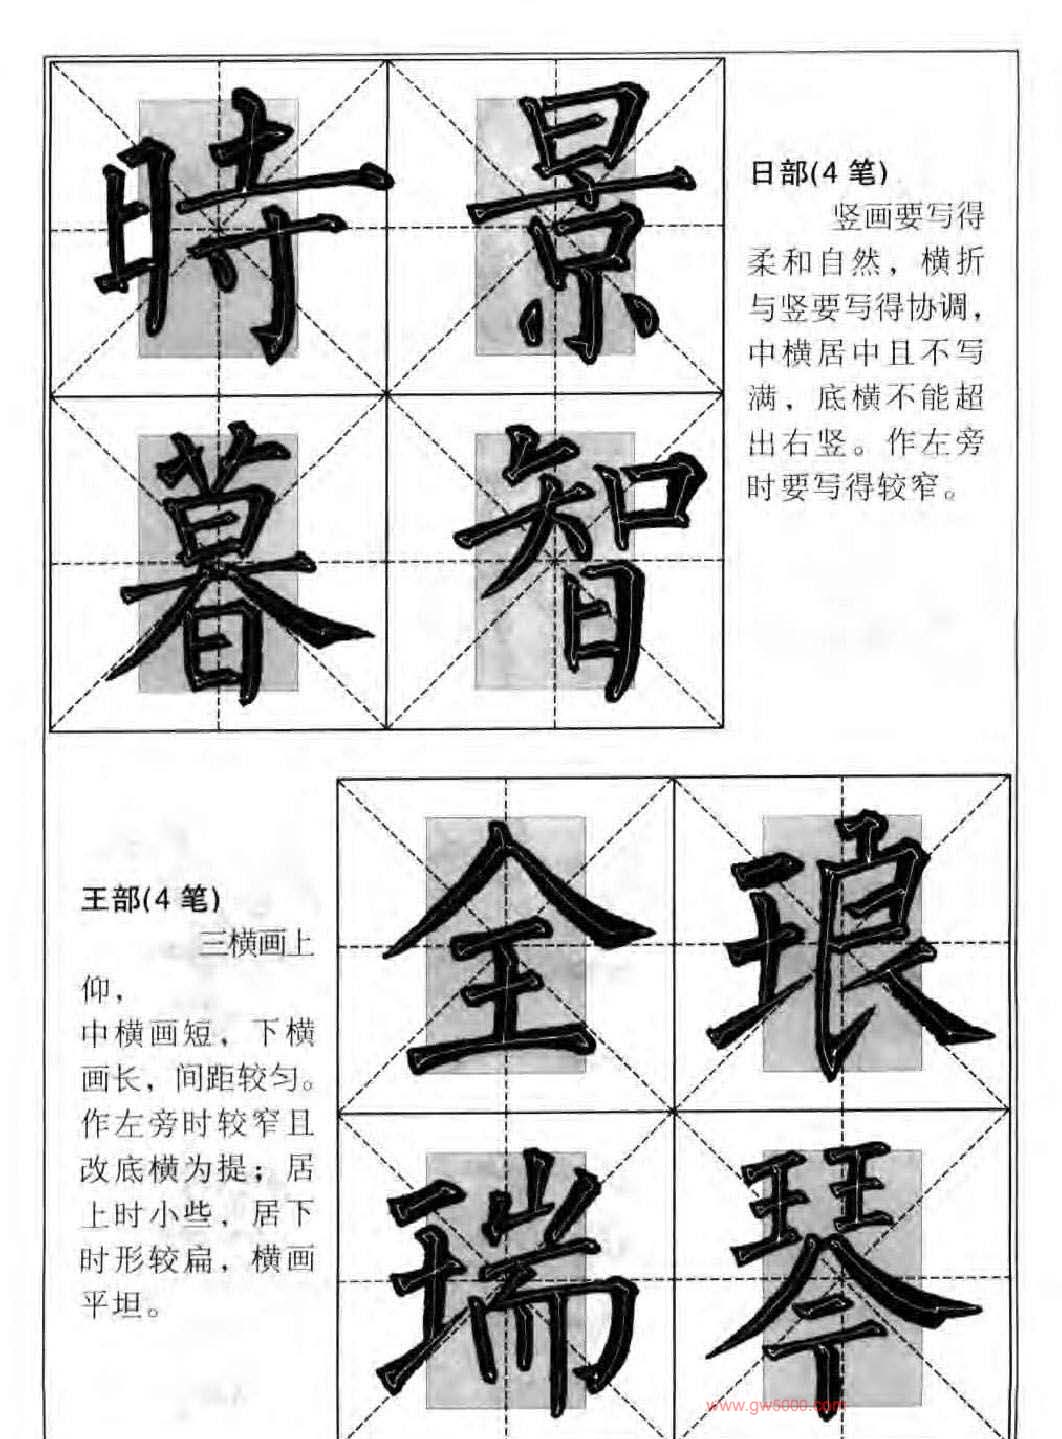 時景
日部(4笔)
竖画要写得
柔和自然，横折
与竖要写得协调，
中横居中且不写
满，底横不能超
出右竖。作左旁
时要写得较窄。
暮智
王部(4笔)
三横画上
仰，
中横画短，下横
画长，间距较匀。
作左旁时较窄且
改底横为提；居
上时小些，居下
时形较扁，横画
平坦。
全琅
瑞琴
www.gw5000.com